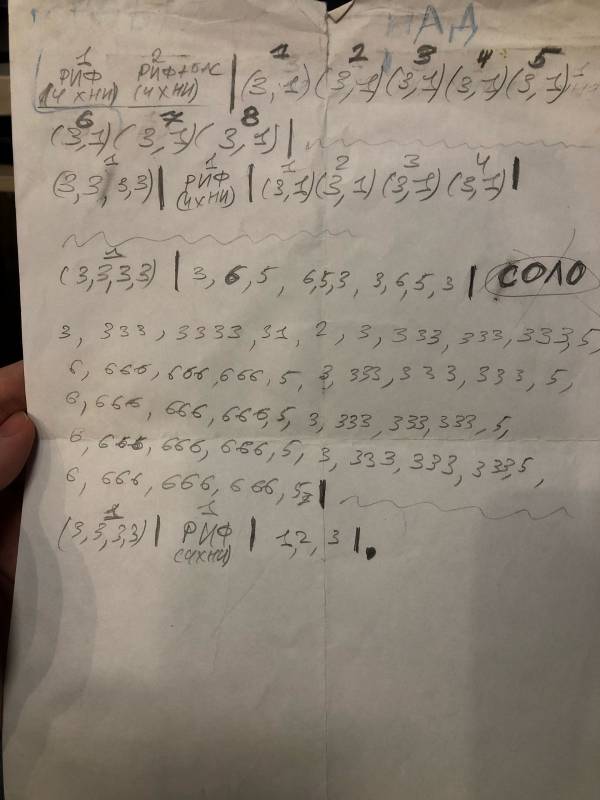 НАД
1 2 1 2 3 4 5
РИФ РИФ+БАС | (3,1) (3,1) (3,1) (3,1) (3,1)
(4 ХНИ) (4 ХНИ)
6 7 8
(3,1) (3,1) (3,1) |
1 1 1 2 3 4
(3,3,3,3) | РИФ | (3,1) (3,1) (3,1) (3,1) |
(4 ХНИ)
1
(3,3,3,3) | 3, 6, 5, 6,5,3, 3,6,5,3 | СОЛО
3, 333, 3333, 31, 2, 3, 333, 333, 333, 5,
6, 666, 666, 666, 5, 3, 333, 333, 333, 5,
6, 666, 666, 666, 5, 3, 333, 333, 333, 5,
6, 666, 666, 666, 5, 3, 333, 333, 333, 5,
6, 666, 666, 666, 5, |
1 1
(3,3,3,3) | РИФ | 1, 2, 3 |.
(4ХНИ)